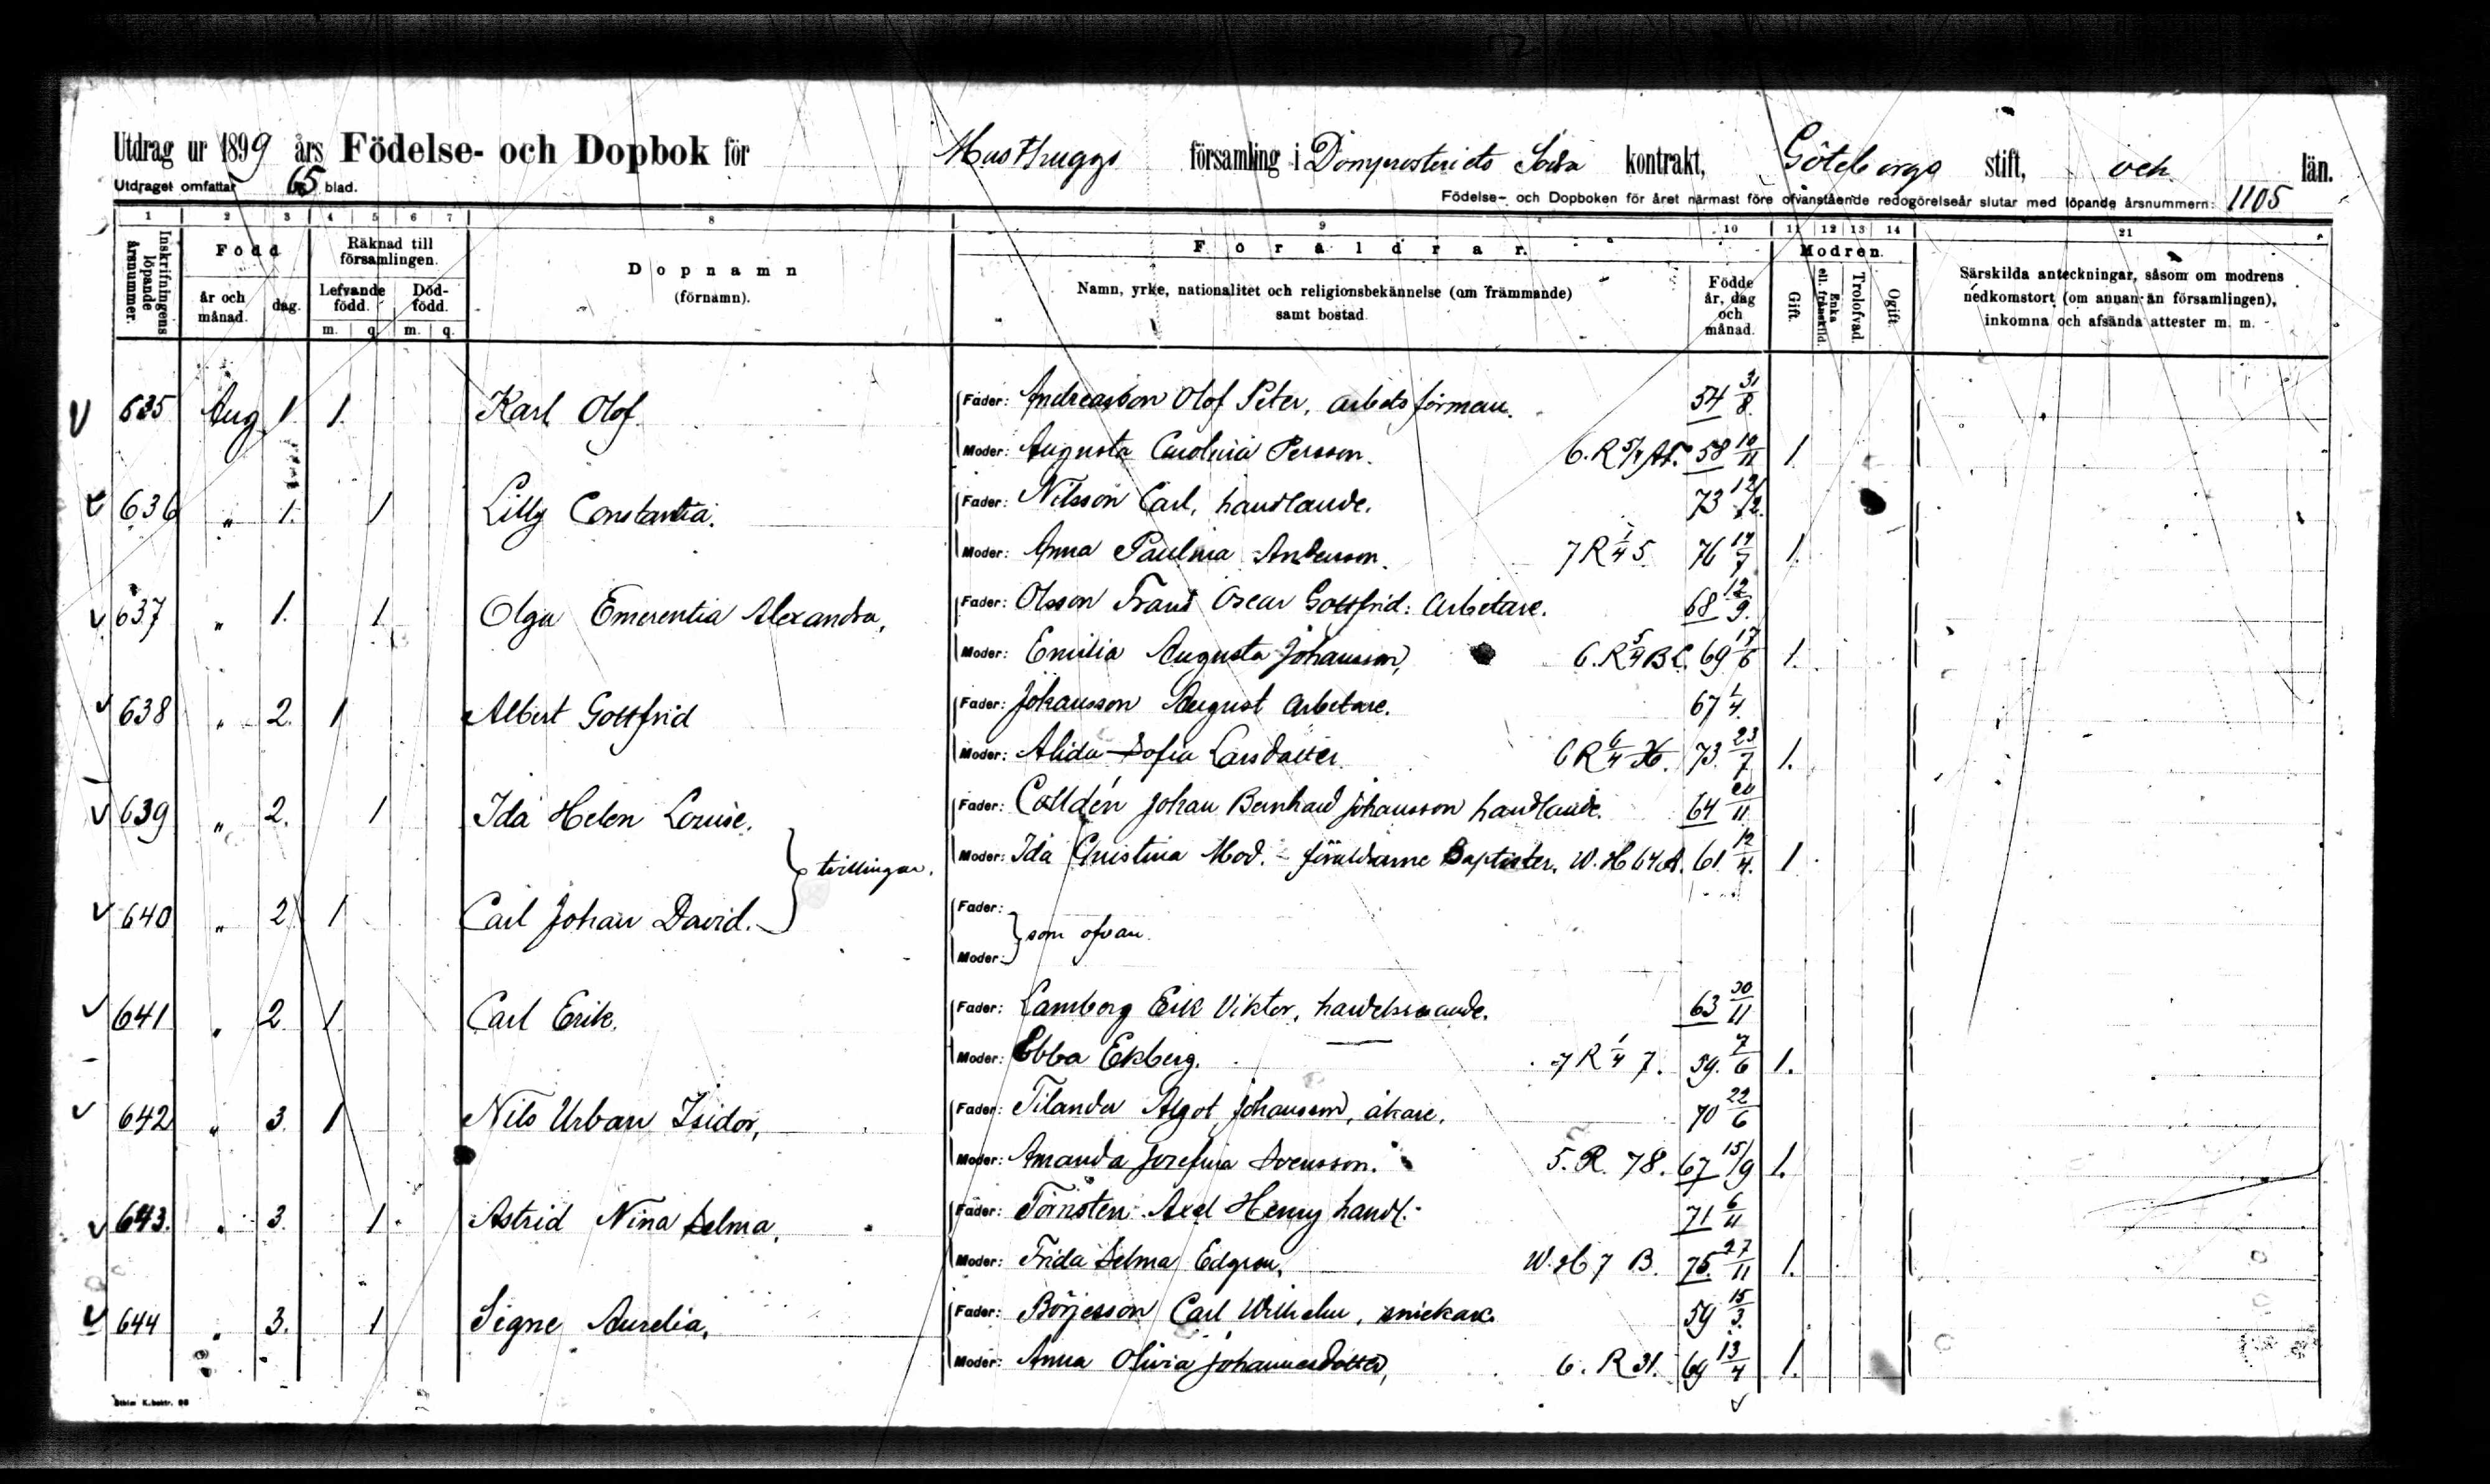 Utdrag ur 1899 års Födelse- och Dopbok för Masthuggs församling i Domprosteriets Södra kontrakt, Göteborgs stift, och län.
Utdraget omfattar 65 blad.
Födelse- och Dopboken för året närmast före ofvanstående redogörelseår slutar med löpande årsnummern: 1105
1 2 3 4 5 6 7 8 9 10 11 12 13 14 21
Inskrifningens löpande årsnummer.
Född
år och månad.
dag.
Räknad till församlingen.
Lefvande född.
Död-född.
m. q. m. q.
Dopnamn
(förnamn).
Föräldrar.
Namn, yrke, nationalitet och religionsbekännelse (om främmande)
samt bostad
Födde år, dag och månad.
Modren.
Gift.
Enka ell. frånskild.
Trolofvad.
Ogift.
Särskilda anteckningar, såsom om modrens
nedkomstort (om annan än församlingen),
inkomna och afsända attester m. m.
635 Aug 1. 1. Karl Olof. Fader: Andreasson Olof Peter, arbetsförman. 54 31/8.
Moder: Augusta Carolina Persson. 6. R 5/4 58 10/11 1.
636 " 1. 1 Lilly Constantia. Fader: Nilsson Carl, handlande. 73 12/12.
Moder: Anna Paulina Anderson. 7 R 1/4 5. 76 14/7 1.
637 " 1. 1. Olga Emerentia Alexandra, Fader: Olsson Frans Oscar Gottfrid: Arbetare. 68 12/9.
Moder: Emilia Augusta Johansson, 6. R 5/4 B C. 69 17/6 1.
638 " 2. 1 Albert Gottfrid Fader: Johansson August Arbetare. 67 1/4.
Moder: Alida Sofia Larsdotter. 6 R 6/4 73. 23/7 1.
639 " 2. 1 Ida Helen Louise. Fader: Colldén Johan Bernhard Johansson handlande. 64 20/11
Moder: Ida Christina Mod. - föräldrarne Baptister. W. H 64 A. 61. 12/4. 1
tvillingar.
640 " 2 1 Carl Johan David. Fader:
som ofvan.
Moder:
641 " 2 1. Carl Erik. Fader: Lamberg Erik Viktor, 63 30/11
Moder: Ebba Ekberg. 7 R 1/4 7. 59. 7/6 1.
642 " 3. 1 Nils Urban Isidor, Fader: Tilander Algot Johansson, åkare. 70 22/6
Moder: Amanda Josefina Svensson. 5. R. 78. 67 15/9 1.
643. " 3. 1. Astrid Nina Selma, Fader: Törnsten Axel Henry handl. 71 6/11
Moder: Frida Selma Edgren, W. H 7 B. 75. 27/11 1.
644 " 3. 1 Signe Aurelia, Fader: Börjesson Carl Wilhelm, snickare. 59 15/3.
Moder: Anna Olivia Johannesdotter, 6. R 31. 69 13/4 1.